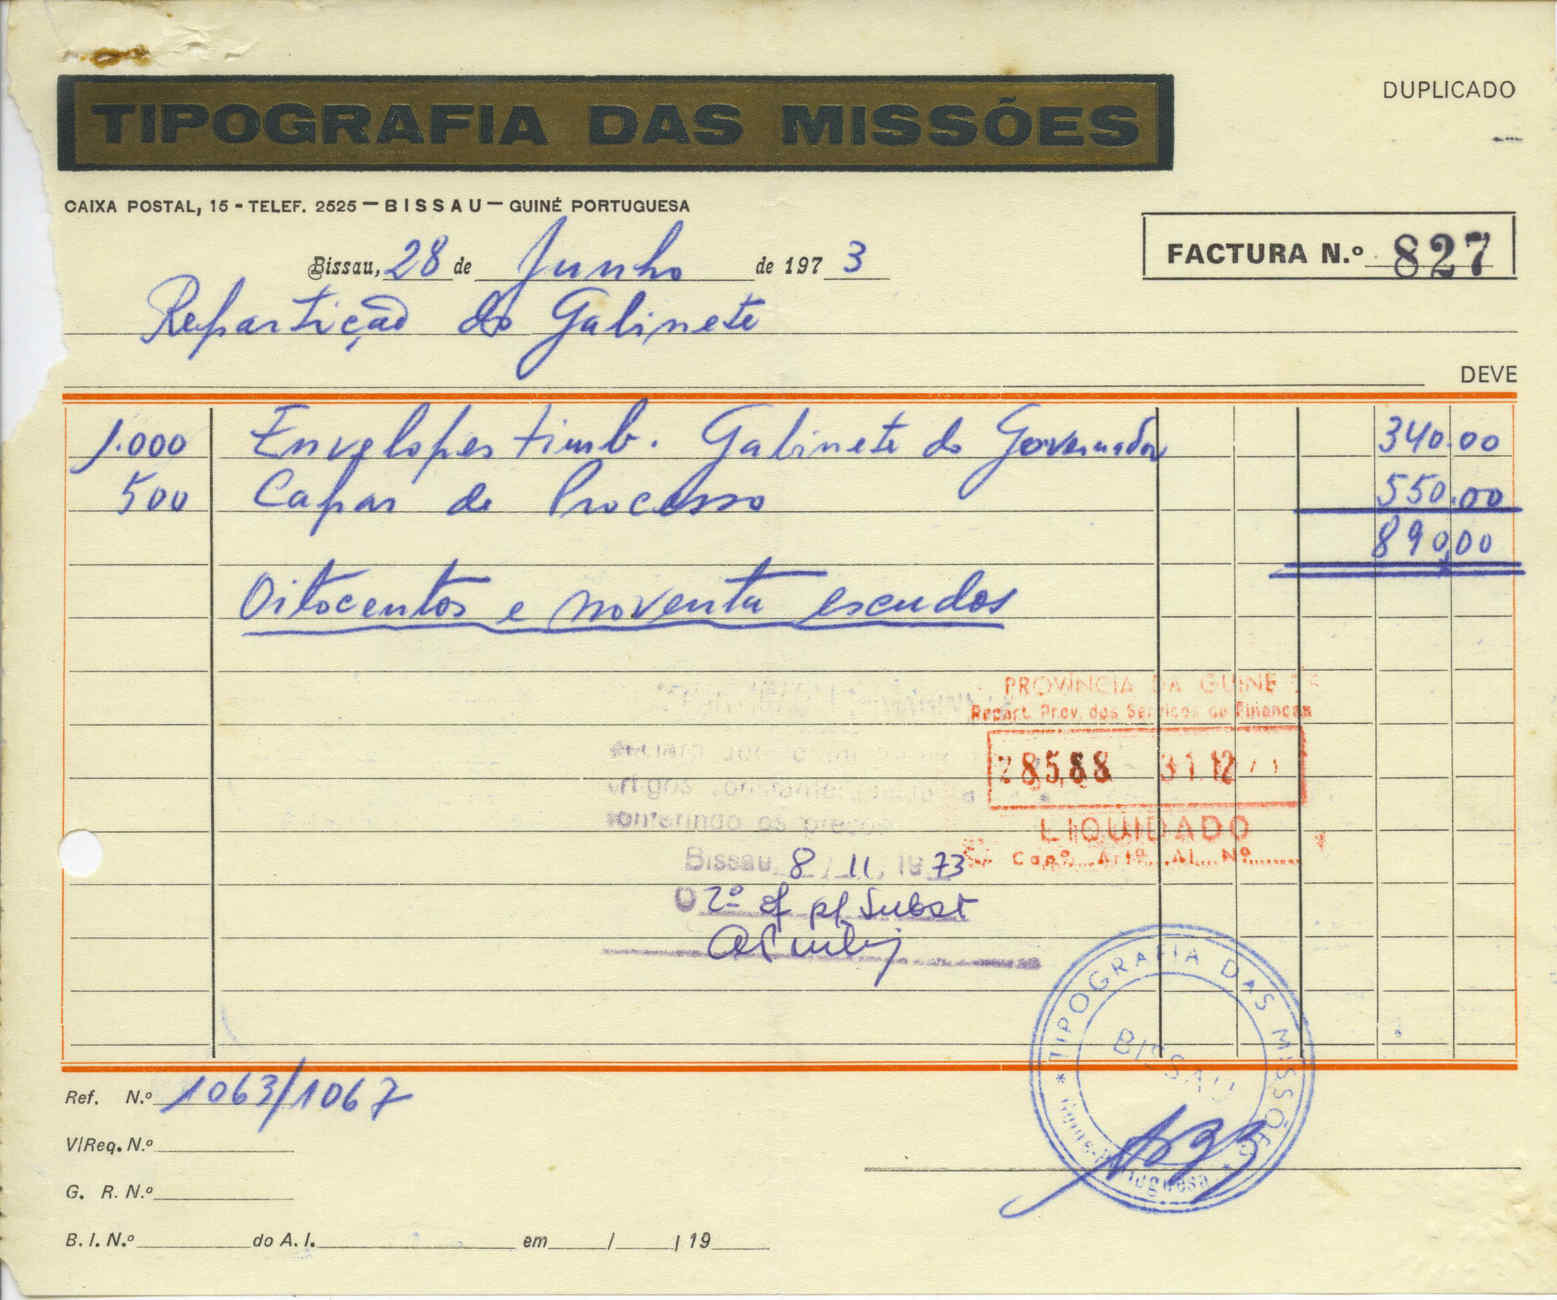 DUPLICADO
TIPOGRAFIA DAS MISSÕES
CAIXA POSTAL, 15 - TELEF. 2525 — BISSAU — GUINÉ PORTUGUESA
FACTURA N.º 827
Bissau, 28 de Junho de 1973
Repartição do Gabinete
DEVE
1.000 Envelopes timb. Gabinete do Governador 340.00
500 Capas de Processo 550.00
890,00
Oitocentos e noventa escudos
PROVÍNCIA DA GUINÉ
Repart. Prov. dos Serviços de Finanças
28588 31 12
conferindo os preços
LIQUIDADO
Cap.º Art.º Al. N.º
Bissau, 8 / 11 / 1973
O 2º of pl Subst
TIPOGRAFIA DAS MISSÕES
BISSAU
Guiné Portuguesa
Ref. N.º 1063/1067
V/Req. N.º
G. R. N.º
B. I. N.º do A. I. em / / 19